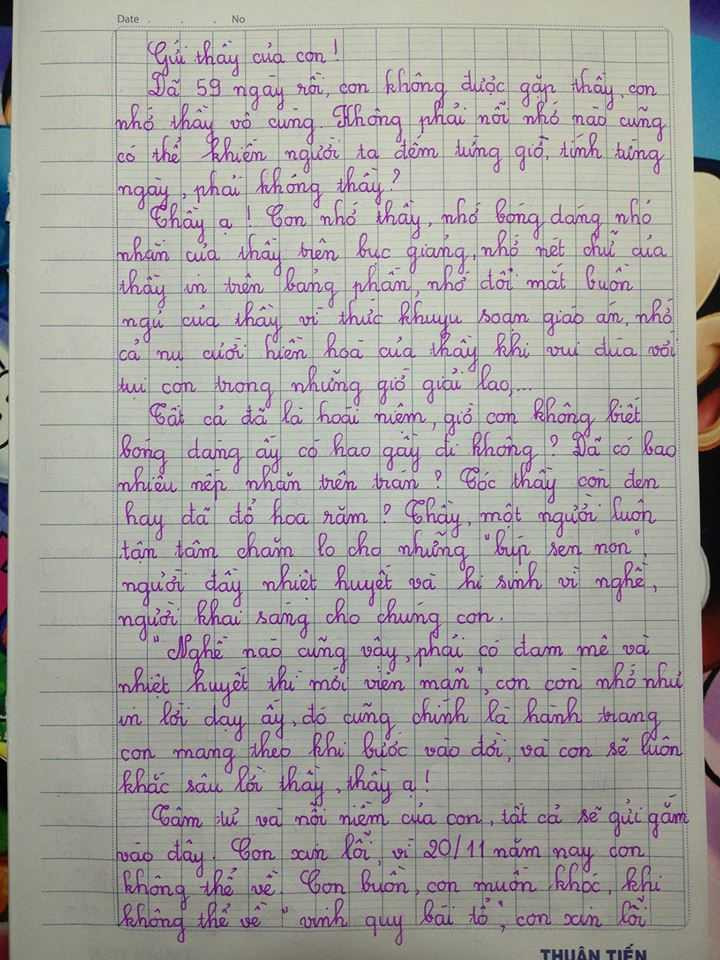 Date . . . No
Gửi thầy của con !
Đã 59 ngày rồi, con không được gặp thầy, con
nhớ thầy vô cùng. Không phải nỗi nhớ nào cũng
có thể khiến người ta đếm từng giờ, tính từng
ngày, phải không thầy ?
Thầy ạ ! Con nhớ thầy, nhớ bóng dáng nhỏ
nhắn của thầy trên bục giảng, nhớ nét chữ của
thầy in trên bảng phấn, nhớ đôi mắt buồn
ngủ của thầy vì thức khuya soạn giáo án, nhớ
cả nụ cười hiền hoà của thầy khi vui đùa với
tụi con trong những giờ giải lao,...
Tất cả đã là hoài niệm, giờ con không biết
bóng dáng ấy có hao gầy đi không ? Đã có bao
nhiêu nếp nhăn trên trán ? Tóc thầy còn đen
hay đã đổ hoa râm ? Thầy, một người luôn
tận tâm chăm lo cho những "búp sen non",
người đầy nhiệt huyết và hi sinh vì nghề,
người khai sáng cho chúng con.
"Nghề nào cũng vậy, phải có đam mê và
nhiệt huyết thì mới viên mãn", con còn nhớ như
in lời dạy ấy, đó cũng chính là hành trang
con mang theo khi bước vào đời, và con sẽ luôn
khắc sâu lời thầy, thầy ạ !
Tâm tư và nỗi niềm của con, tất cả sẽ gửi gắm
vào đây. Con xin lỗi, vì 20/11 năm nay con
không thể về. Con buồn, con muốn khóc, khi
không thể về "vinh quy bái tổ", con xin lỗi
THUẬN TIẾN